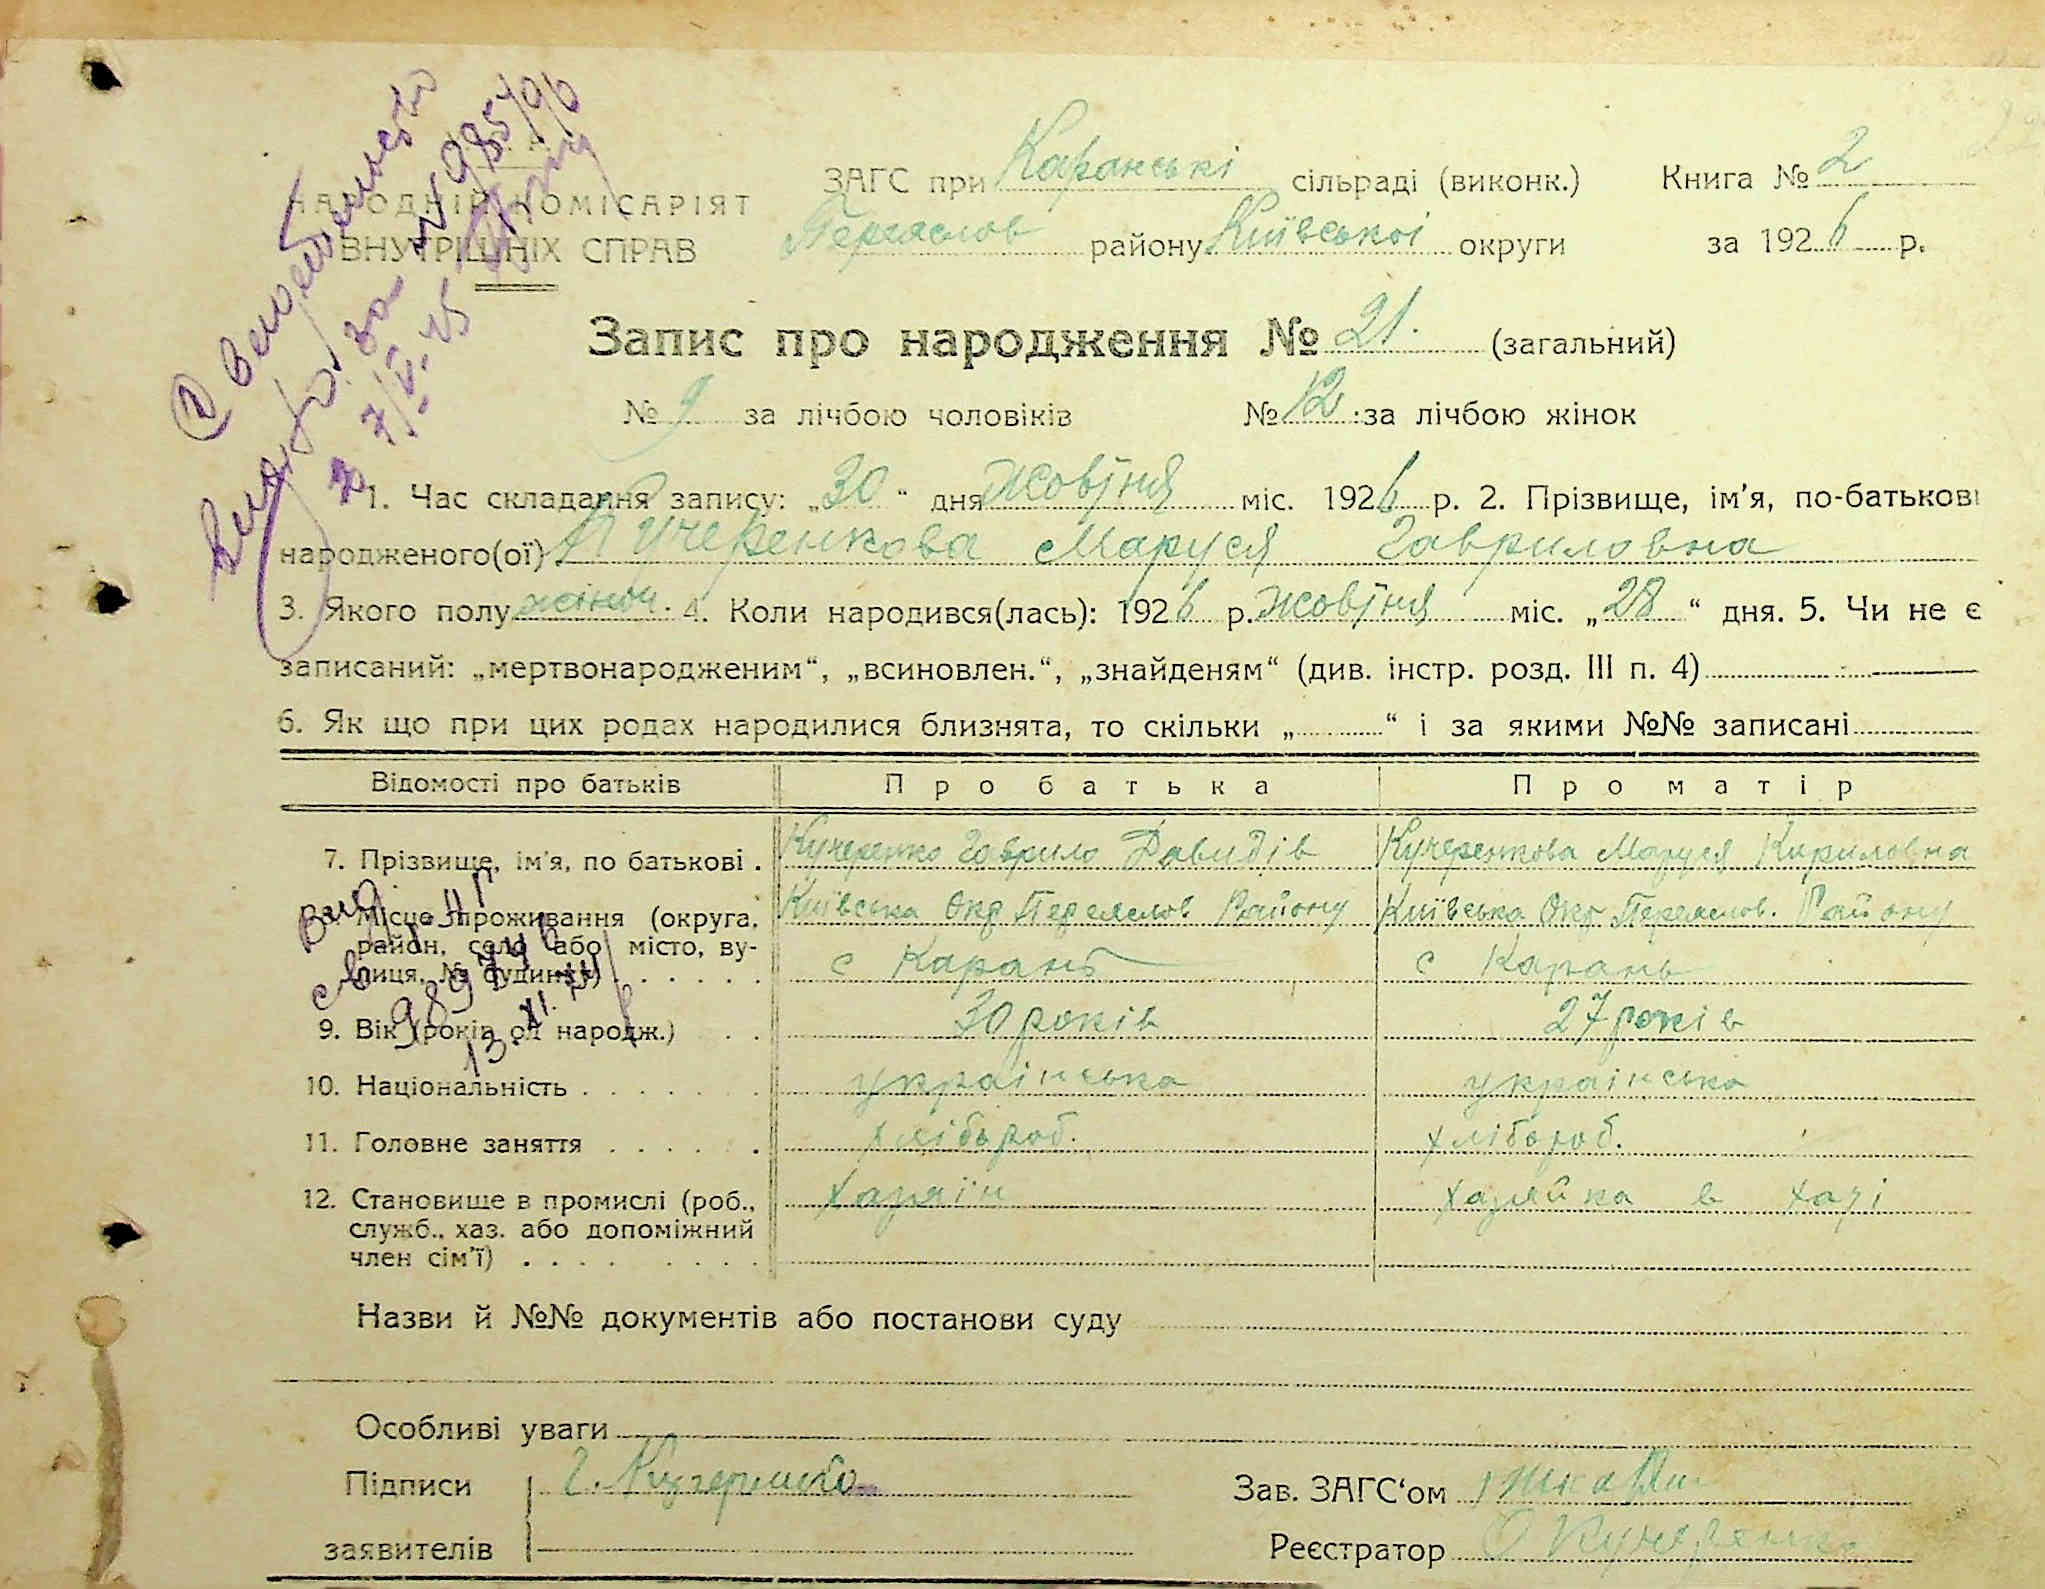 НАРОДНІЙ КОМІСАРІЯТ
ВНУТРІШНІХ СПРАВ
ЗАГС при Каранські сільраді (виконк.) Книга № 2
Переяслов району Київської округи за 1926 р.
Запис про народження № 21. (загальний)
№ 9 за лічбою чоловіків № 12 за лічбою жінок
1. Час складання запису: „30“ дня жовтня міс. 1926 р. 2. Прізвище, ім’я, по-батькові
народженого(ої) Кучеренкова Маруся Гавриловна
3. Якого полу жіноч. 4. Коли народився(лась): 1926 р. жовтня міс. „28“ дня. 5. Чи не є
записаний: „мертвонародженим“, „всиновлен.“, „знайденям“ (див. інстр. розд. III п. 4)
6. Як що при цих родах народилися близнята, то скільки „ “ і за якими №№ записані
Відомості про батьків Про батька Про матір
7. Прізвище, ім’я, по батькові . Кучеренко Гаврило Давидів Кучеренкова Маруся Кириловна
8. Місце проживання (округа, район, село або місто, вулиця, № будинку) Київська Окр Переяслов Району Київська Окр Переяслов. Району
с Карань с Карань
9. Вік (років од народж.) 30 років 27 років
10. Національність українська українська
11. Головне заняття хлібороб. хлібороб.
12. Становище в промислі (роб., хазяїн хазяйка в хазі
служб., хаз. або допоміжний
член сім’ї)
Назви й №№ документів або постанови суду
Особливі уваги
Підписи Г. Кучеренко Зав. ЗАГС‘ом
заявителів Реєстратор О Кучеренко
№ 985796
7/V-45
989746
13.XI.